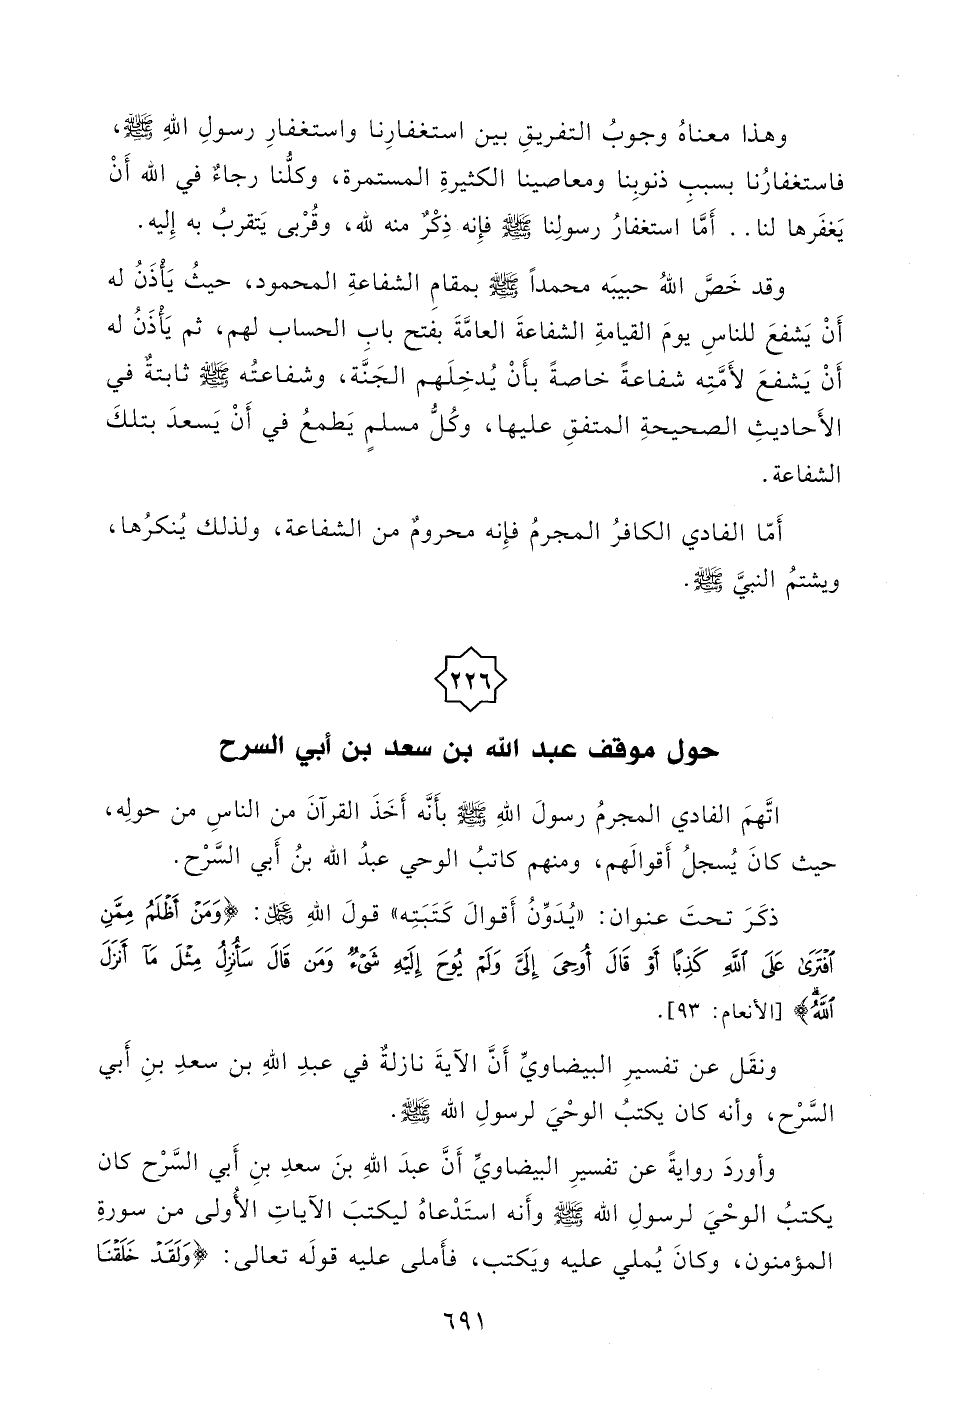 وهذا معناهُ وجوبُ التفريقِ بين استغفارِنا واستغفارِ رسولِ اللهِ ﷺ،
فاستغفارُنا بسببِ ذنوبِنا ومعاصينا الكثيرةِ المستمرة، وكلُّنا رجاءٌ في الله أَنْ
يَغفَرها لنا.. أَمَّا استغفارُ رسولِنا ﷺ فإنه ذِكْرٌ منه لله، وقُرْبى يَتقربُ به إليه.
وقد خَصَّ اللهُ حبيبَه محمداً ﷺ بمقامِ الشفاعةِ المحمود، حيثُ يَأْذَنُ له
أَنْ يَشفعَ للناسِ يومَ القيامةِ الشفاعةَ العامَّةَ بفتح بابِ الحساب لهم، ثم يَأْذَنُ له
أَنْ يَشفعَ لأمَّتِه شفاعةً خاصةً بأَنْ يُدخِلَهم الجَنَّة، وشفاعتُه ﷺ ثابتةٌ في
الأحاديثِ الصحيحةِ المتفقِ عليها، وكُلُّ مسلمٍ يَطمعُ في أَنْ يَسعدَ بتلكَ
الشفاعة.
أَمّا الفادي الكافرُ المجرمُ فإنه محرومٌ من الشفاعة، ولذلك يُنكرُها،
ويشتمُ النبيَّ ﷺ.
٢٢٦
حول موقف عبد الله بن سعد بن أبي السرح
اتَّهمَ الفادي المجرمُ رسولَ اللهِ ﷺ بأَنَّه أَخَذَ القرآنَ من الناسِ من حولِه،
حيث كانَ يُسجلُ أقوالَهم، ومنهم كاتبُ الوحي عبدُ الله بنُ أبي السَّرْح.
ذكَرَ تحتَ عنوان: «يُدَوِّنُ أقوالَ كَتَبَتِه» قولَ اللهِ ﷻ: ﴿وَمَنْ أَظْلَمُ مِمَّنِ
ٱفْتَرَىٰ عَلَى ٱللَّهِ كَذِبًا أَوْ قَالَ أُوحِىَ إِلَىَّ وَلَمْ يُوحَ إِلَيْهِ شَىْءٌ وَمَن قَالَ سَأُنزِلُ مِثْلَ مَآ أَنزَلَ
ٱللَّهُۗ﴾ [الأنعام: ٩٣].
ونقَل عن تفسيرِ البيضاويِّ أَنَّ الآيةَ نازلةٌ في عبدِ اللهِ بن سعدِ بنِ أَبي
السَّرْح، وأنه كان يكتبُ الوحْيَ لرسولِ الله ﷺ.
وأوردَ روايةً عن تفسيرِ البيضاويِّ أَنَّ عبدَ اللهِ بنَ سعدِ بنِ أَبي السَّرْح كان
يكتبُ الوحْيَ لرسولِ الله ﷺ وأنه استَدْعاهُ ليكتبَ الآياتِ الأُولى من سورةِ
المؤمنون، وكانَ يُملي عليه ويَكتب، فأَملى عليه قولَه تعالى: ﴿وَلَقَدْ خَلَقْنَا
٦٩١